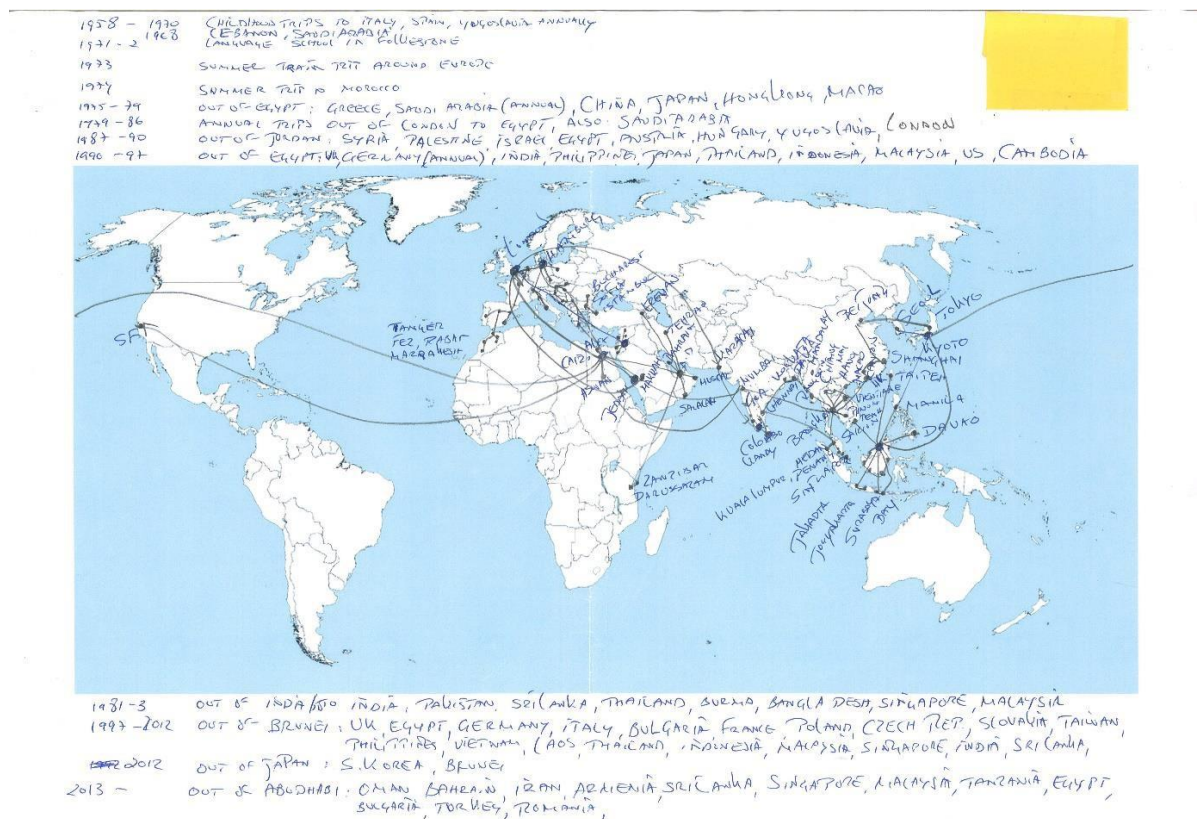 1958 - 1970 CHILDHOOD TRIPS TO ITALY, SPAIN, YUGOSLAVIA ANNUALLY
1968 LEBANON, SAUDI ARABIA
1971-2 LANGUAGE SCHOOL IN FOLKESTONE
1973 SUMMER TRAIN TRIP AROUND EUROPE
1974 SUMMER TRIP TO MOROCCO
1975-79 OUT OF EGYPT: GREECE, SAUDI ARABIA (ANNUAL), CHINA, JAPAN, HONGKONG, MACAO
1979-86 ANNUAL TRIPS OUT OF LONDON TO EGYPT, ALSO: SAUDI ARABIA
1987-90 OUT OF JORDAN: SYRIA, PALESTINE ISRAEL EGYPT, AUSTRIA, HUNGARY, YUGOSLAVIA, LONDON
1990-97 OUT OF EGYPT: UK, GERMANY (ANNUAL), INDIA, PHILIPPINE, JAPAN, THAILAND, INDONESIA, MALAYSIA, US, CAMBODIA
LONDON
BUCHAREST
SOFIA
ISTANBUL
YEREVAN
TEHRAN
BEIJING
SEOUL
TOKYO
KYOTO
SHANGHAI
TAIPEH
MANILA
DAVAO
SF
TANGER
FEZ, RABAT
MARRAKESH
ALEX
CAIRO
ASWAN
JEDDA
KARACHI
MUSCAT
SALALAH
MUMBAI
GOA
COLOMBO
KANDY
MANDALAY
MEDAN
PENANG
SINGAPORE
KUALA LUMPUR
ZANZIBAR
DARUSSALAM
JAKARTA
JOGYAKARTA
SURABAYA
BALI
1981-3 OUT OF INDIA INDIA, PAKISTAN, SRI LANKA, THAILAND, BURMA, BANGLA DESH, SINGAPORE, MALAYSIA
1997-2012 OUT OF BRUNEI: UK, EGYPT, GERMANY, ITALY, BULGARIA FRANCE POLAND, CZECH REP., SLOVAKIA, TAIWAN,
PHILIPPINES, VIETNAM, LAOS THAILAND, INDONESIA, MALAYSIA, SINGAPORE, INDIA, SRI LANKA,
2012 OUT OF JAPAN: S.KOREA, BRUNEI
2013 - OUT OF ABU DHABI: OMAN BAHRAIN, IRAN, ARMENIA SRI LANKA, SINGAPORE, MALAYSIA, TANZANIA, EGYPT,
BULGARIA, TURKEY, ROMANIA,